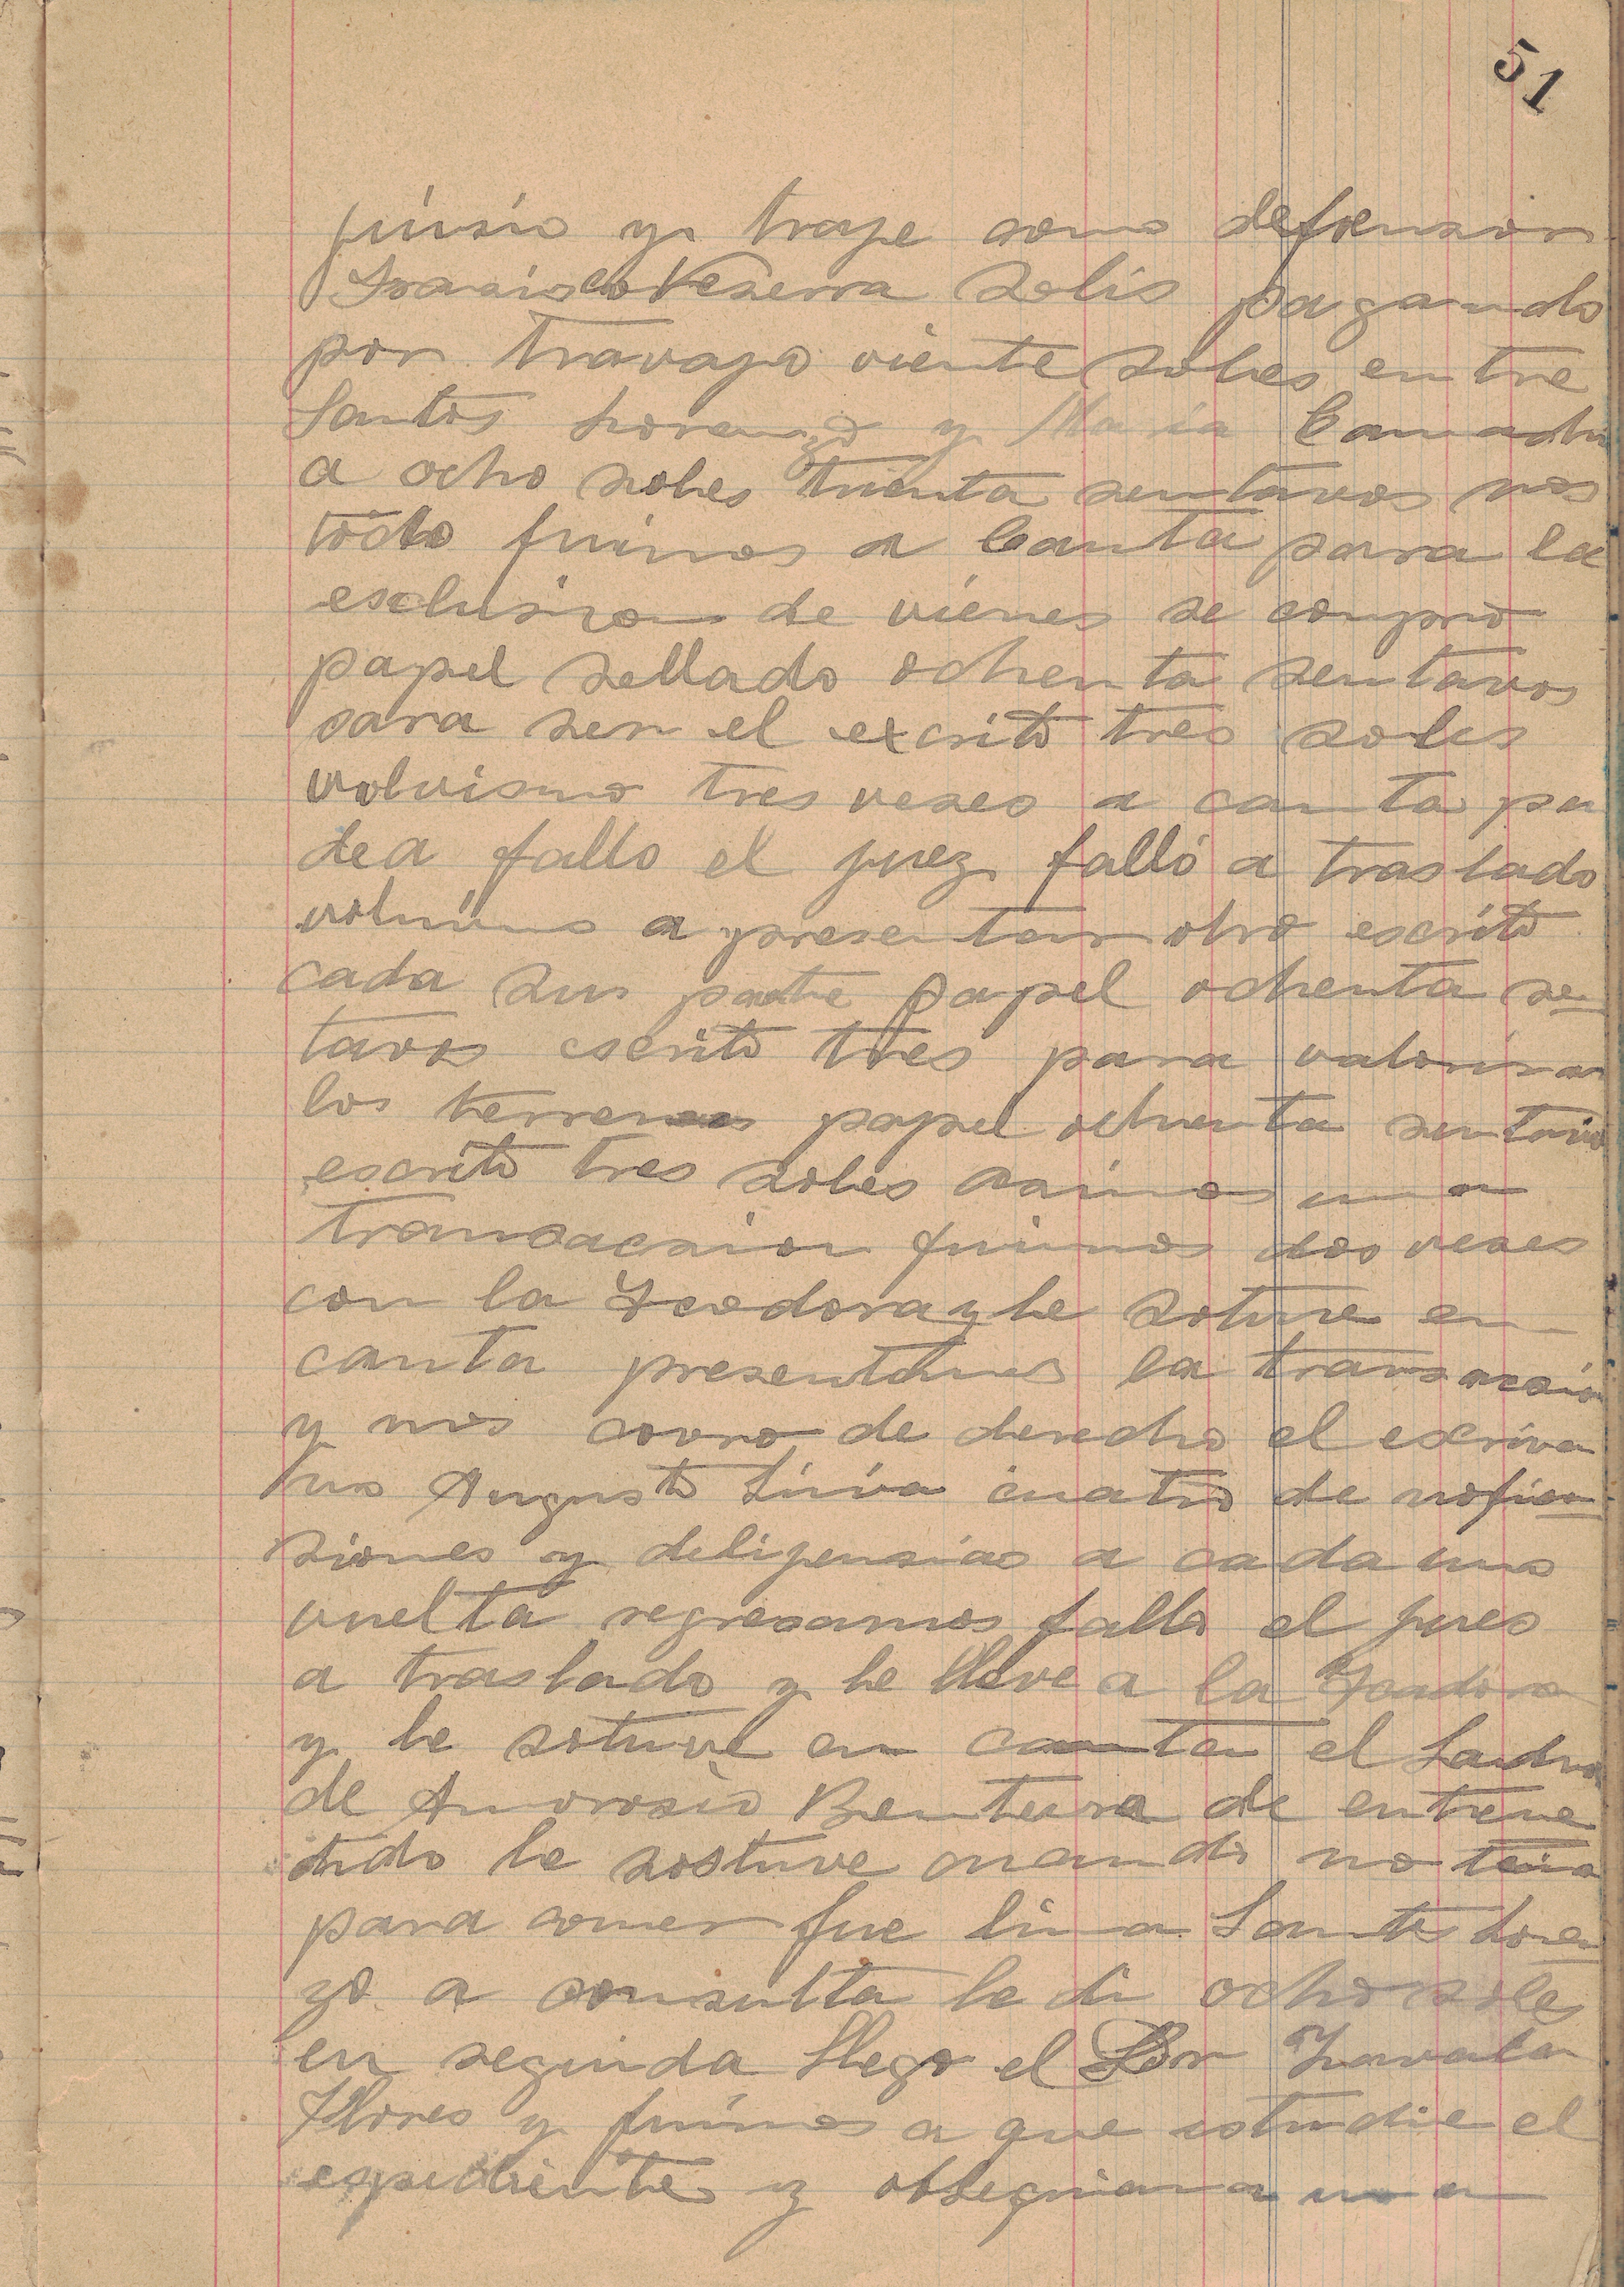 51
juisio y traje como defensor
Fransisco Vezerra Solis pagando
por travajo viente soles entre
Santos Lorenzo y Maria
a ocho soles trienta sentavos nos
todo fuimos a Canta para la
esclusion de vienes se compro
papel sellado ochenta sentavos
para ser el excrito tres soles
volvismo tres veses a canta pa
dea fallo el juez falló a traslado
volvimo a presentar otro escrito
cada sus parte papel ochenta sen
tavos escrito tres para valorisar
los terrenos papel ochenta sentavo
escrito tres soles una
transacsion fuimos dos veses
con la Teodora y le sotuve en
canta presentamos la transacsion
y nos covro de derecho el escriva
no Augusto cuatro de nofica
siones y delijensias a cada uno
vuelta regresamos fallo el jues
a traslado y le lleve a la Teodora
y le sotuve en canta el
de Amvrosio Benteura de entrene
dido le sostuve cuando no tenia
para comer fue lima Santos Loren
zo a consulta le di ocho soles
en seguida llego el Dor Zavala
Flores y fuimos a que estudie el
espediente y obsequiara una